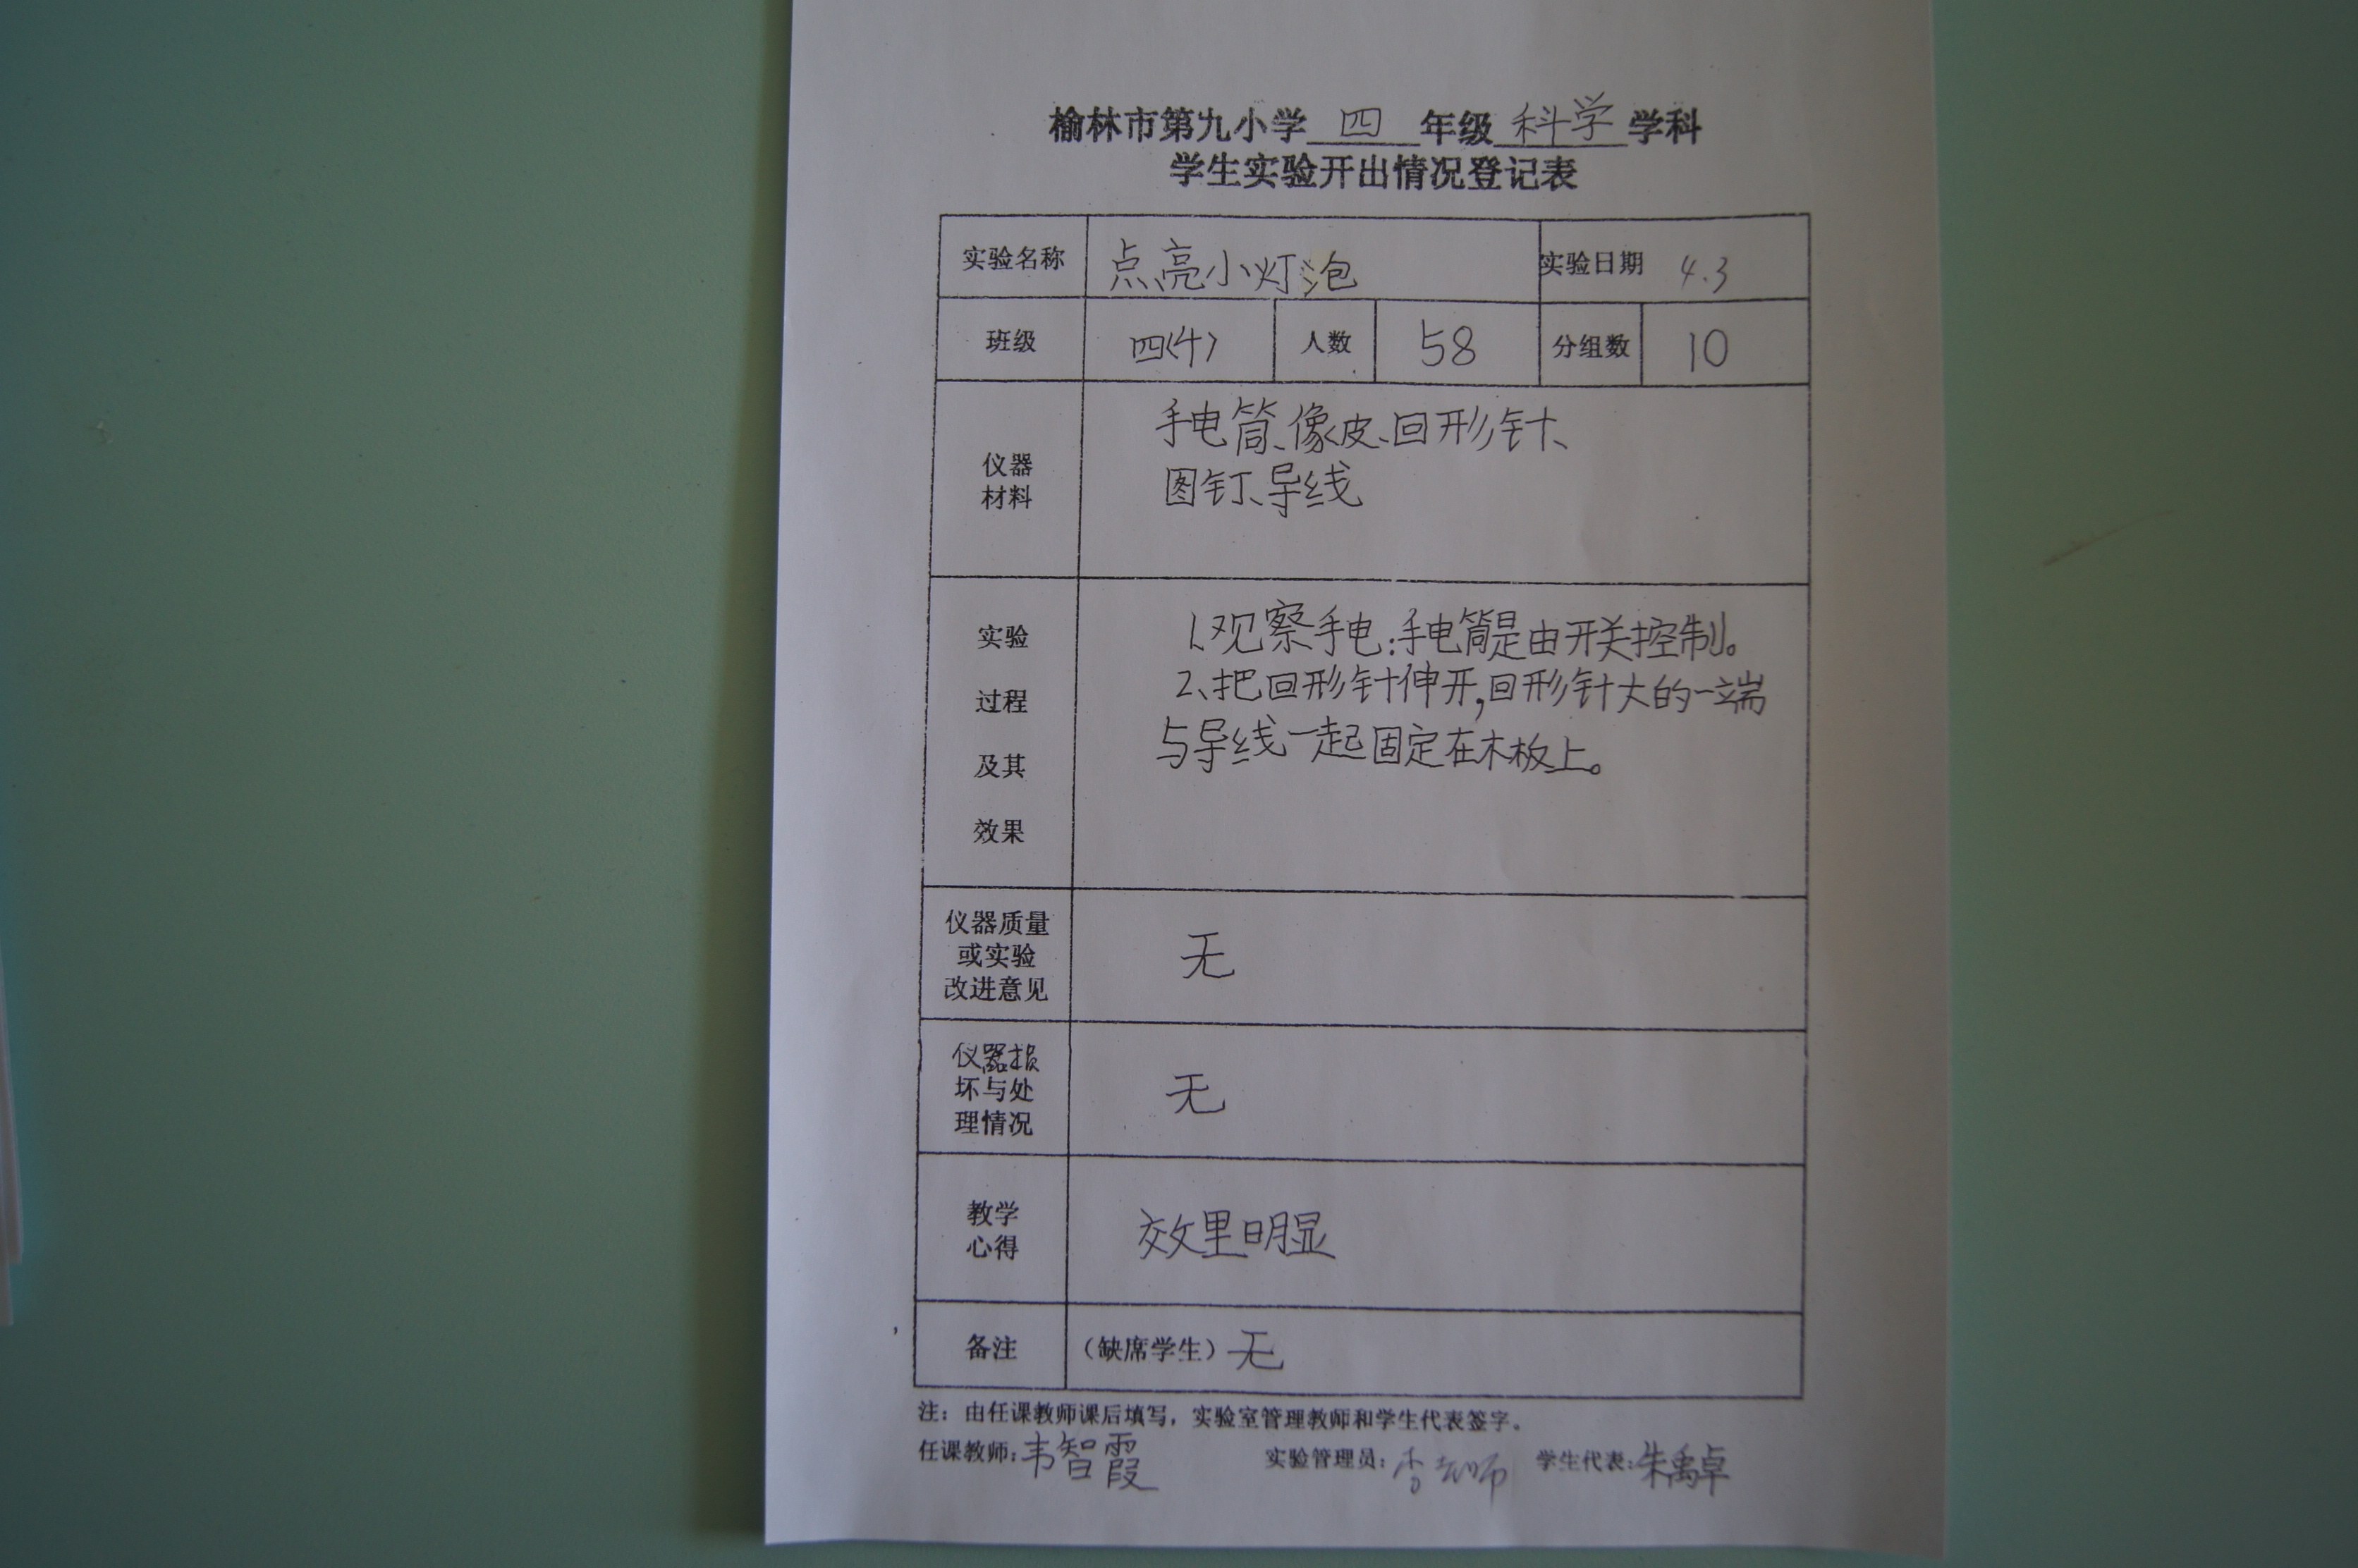 榆林市第九小学 四 年级 科学 学科
学生实验开出情况登记表
实验名称 点亮小灯泡 实验日期 4.3
班级 四(十) 人数 58 分组数 10
仪器
材料
手电筒、像皮、回形针、
图钉、导线
实验
过程
及其
效果
1.观察手电:手电筒是由开关控制。
2、把回形针伸开,回形针大的一端
与导线一起固定在木板上。
仪器质量
或实验
改进意见
无
仪器损
坏与处
理情况
无
教学
心得
效里明显
备注 (缺席学生) 无
注:由任课教师课后填写,实验室管理教师和学生代表签字。
任课教师:韦智霞 实验管理员:李老师 学生代表:朱禹卓